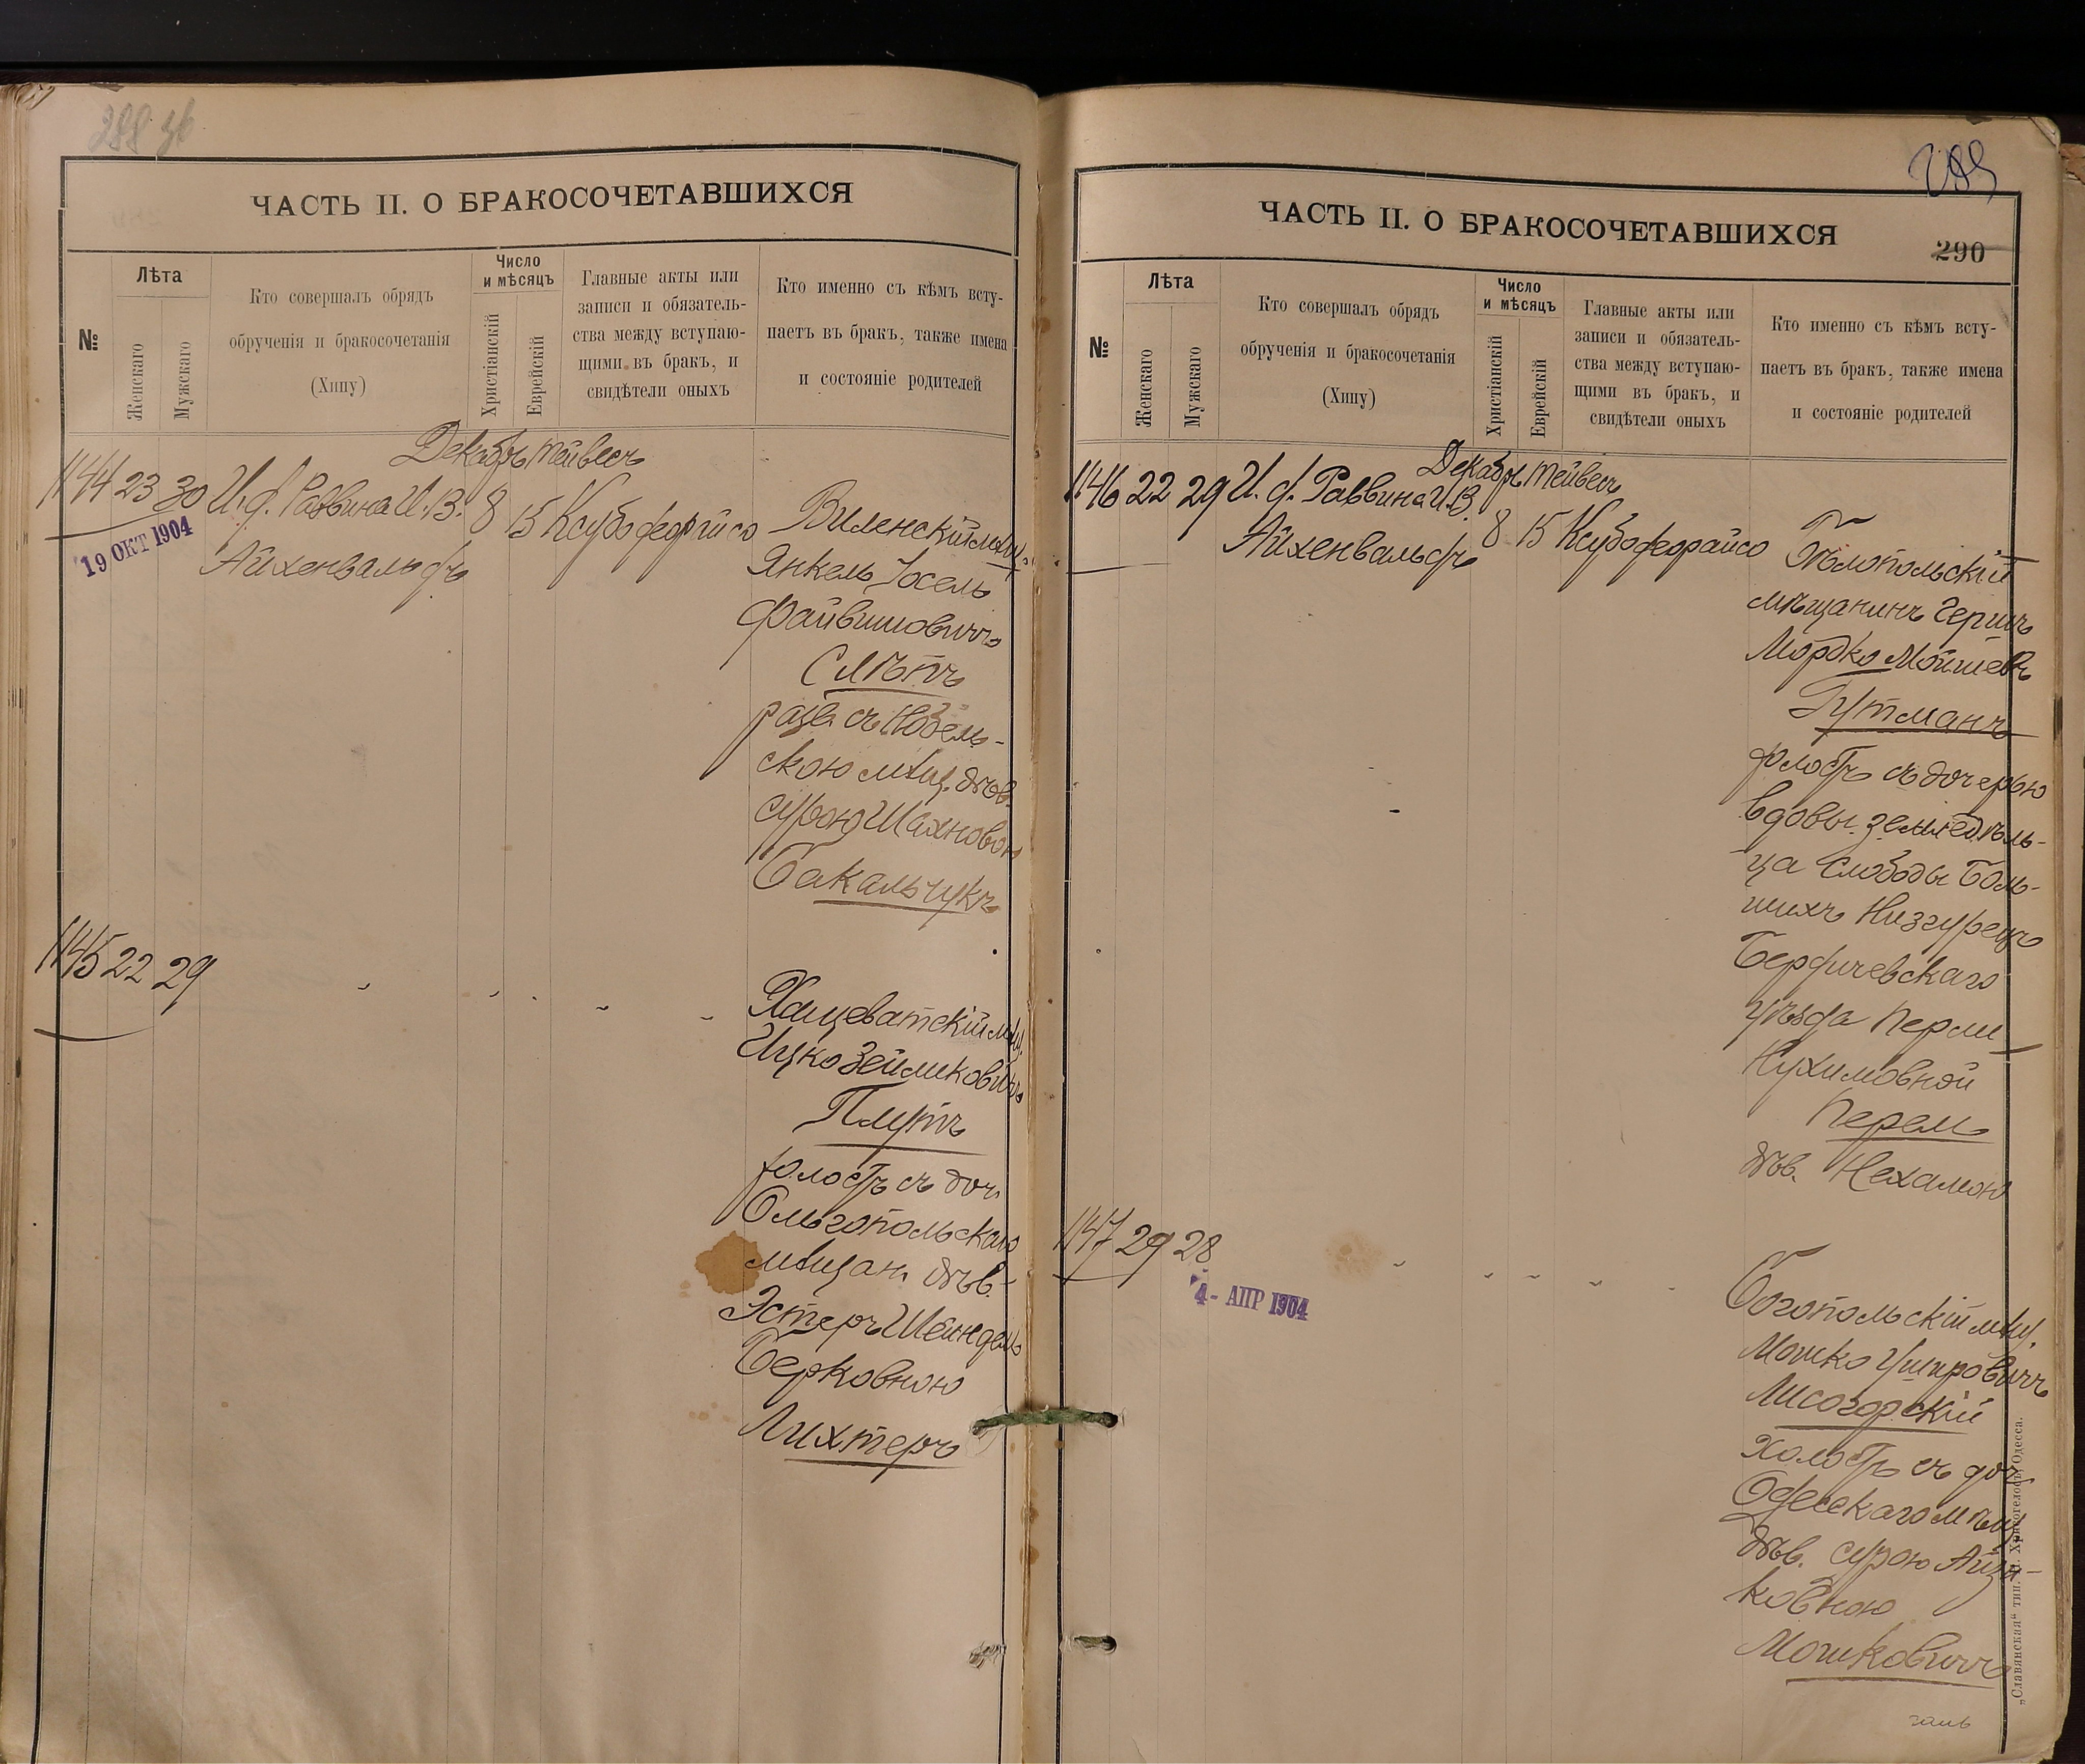 288 зв
ЧАСТЬ II. О БРАКОСОЧЕТАВШИХСЯ
№
Лѣта
Женскаго
Мужскаго
Кто совершалъ обрядъ
обрученія и бракосочетанія
(Хипу)
Число
и мѣсяцъ
Христіанскій
Еврейскій
Главные акты или
записи и обязатель-
ства между вступаю-
щими въ бракъ, и
свидѣтели оныхъ
Кто именно съ кѣмъ всту-
паетъ въ бракъ, также имена
и состояніе родителей
Декабрь Тейвесъ
1144 23 30 И. д. Раввина И. В. 8 15 Ксубо федрайсо
Айхенвальдъ
19 ОКТ 1904
Виленскій мѣщ.
Янкель Іосель
Файвишовичъ
Смѣтъ
разв. съ
скою мѣщ. дѣв.
Сурою Шахновою
Бакальчукъ
1145 22 29
Хащеватскій мѣщ.
Ицко Зейликовичъ
Плутъ
холостъ съ доч.
Ольгопольскаго
мѣщан. дѣв.
Эстеръ Шейндель
Берковною
Лихтеръ
289
ЧАСТЬ II. О БРАКОСОЧЕТАВШИХСЯ
290
№
Лѣта
Женскаго
Мужскаго
Кто совершалъ обрядъ
обрученія и бракосочетанія
(Хипу)
Число
и мѣсяцъ
Христіанскій
Еврейскій
Главные акты или
записи и обязатель-
ства между вступаю-
щими въ бракъ, и
свидѣтели оныхъ
Кто именно съ кѣмъ всту-
паетъ въ бракъ, также имена
и состояніе родителей
Декабрь Тейвесъ
1146 22 29 И. д. Раввина И. В.
Айхенвальдъ 8 15 Ксубо федрайсо
Бѣлопольскій
мѣщанинъ Гершъ
Мордко Мойшевъ
Гутманъ
холостъ съ дочерью
вдовы земледѣль-
ца слободы Боль-
шихъ Низгурецъ
Бердичевскаго
уѣзда Перли
Нухимовной
Перель
дѣв. Нехамою
1147 29 28
4 - АПР 1904
Богопольскій мѣщ.
Мошко Ушировичъ
Лисогорскій
холостъ съ доч.
Одесскаго мѣщ.
дѣв. Сурою Айзи-
ковною
Мошковичъ
„Славянская“ тип. Н. Хрисогелосъ, Одесса.